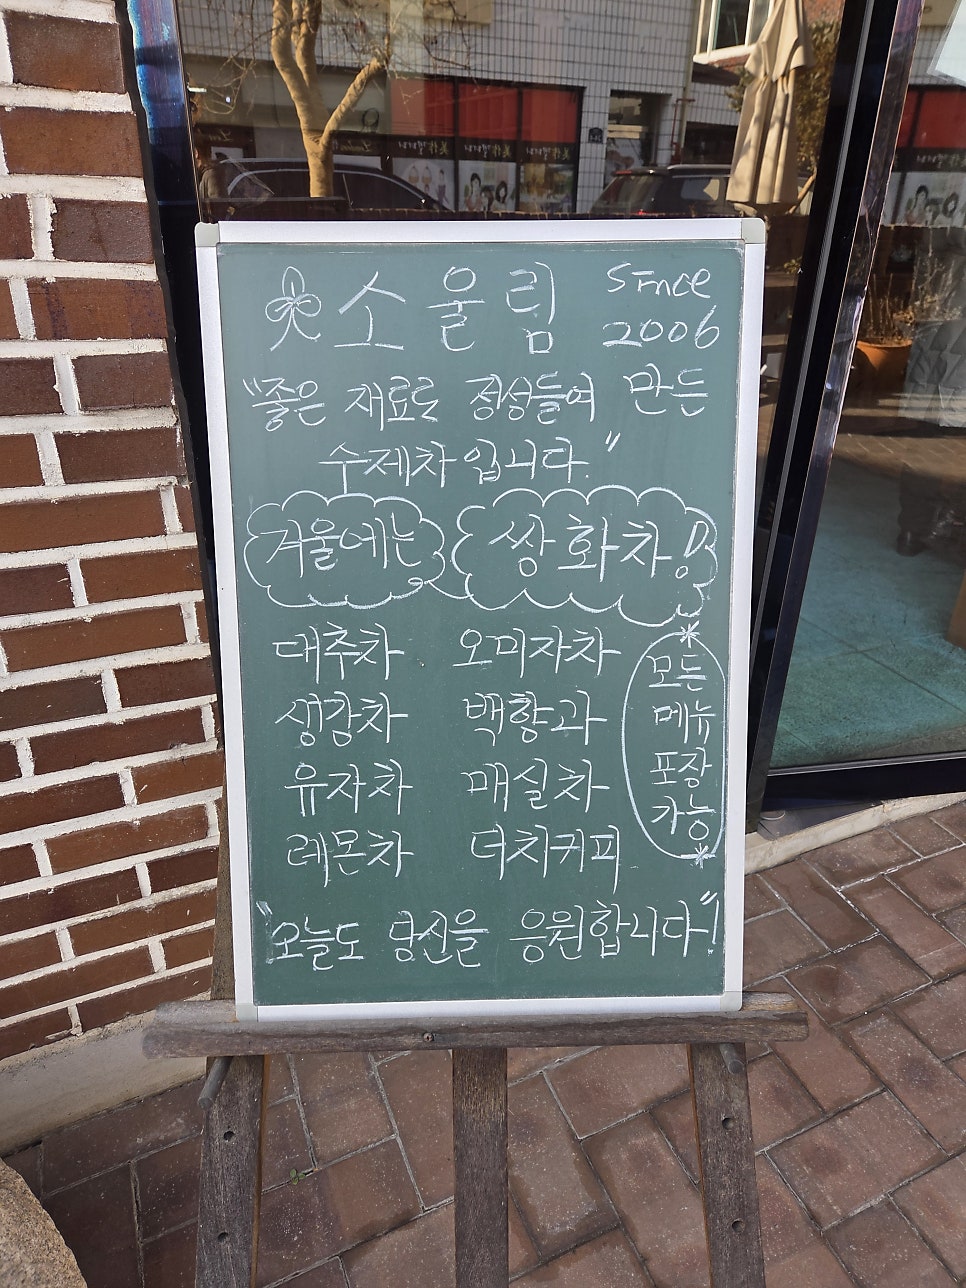 소울림 since 2006
"좋은 재료로 정성들여 만든
수제차입니다."
겨울에는 쌍화차!
대추차 오미자차
생강차 백향과
유자차 매실차
레몬차 더치커피
*모든
메뉴
포장
가능*
"오늘도 당신을 응원합니다"!